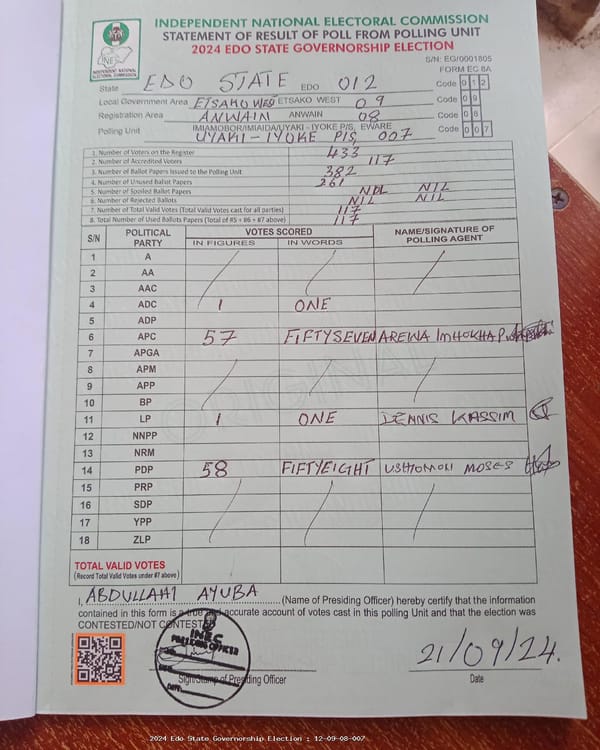 INDEPENDENT NATIONAL ELECTORAL COMMISSION
STATEMENT OF RESULT OF POLL FROM POLLING UNIT
2024 EDO STATE GOVERNORSHIP ELECTION
S/N: EG/0001805
FORM EC 8A
INEC
INDEPENDENT NATIONAL ELECTORAL COMMISSION
State EDO STATE EDO 012 Code 0 1 2
Local Government Area ETSAKO WEST ETSAKO WEST 09 Code 0 9
Registration Area ANWAIN ANWAIN 08 Code 0 8
IMIAMOBOR/IMIAIDA/UYAKI - IYOKE P/S, EWARE
Polling Unit UYAKI-IYOKE P/S, 007 Code 0 0 7
1. Number of Voters on the Register 433
2. Number of Accredited Voters 117
3. Number of Ballot Papers Issued to the Polling Unit 382
4. Number of Unused Ballot Papers 261
5. Number of Spoiled Ballot Papers NIL
6. Number of Rejected Ballots NIL NIL
7. Number of Total Valid Votes (Total Valid Votes cast for all parties) 117
8. Total Number of Used Ballots Papers (Total of #5 + #6 + #7 above) 117
S/N POLITICAL PARTY VOTES SCORED NAME/SIGNATURE OF POLLING AGENT
IN FIGURES IN WORDS
1 A
2 AA
3 AAC
4 ADC 1 ONE
5 ADP
6 APC 57 FIFTYSEVEN AREWA IMHOKHA P.
7 APGA
8 APM
9 APP
10 BP
11 LP 1 ONE DENNIS KASSIM
12 NNPP
13 NRM
14 PDP 58 FIFTYEIGHT USHIOMOLI MOSES
15 PRP
16 SDP
17 YPP
18 ZLP
TOTAL VALID VOTES
(Record Total Valid Votes under #7 above)
I, ABDULLAHI AYUBA (Name of Presiding Officer) hereby certify that the information
contained in this form is a true and accurate account of votes cast in this polling Unit and that the election was
CONTESTED/NOT CONTESTED
INEC
PRESIDING OFFICER
21/09/24.
Sign/Stamp of Presiding Officer Date
2024 Edo State Governorship Election : 12-09-08-007